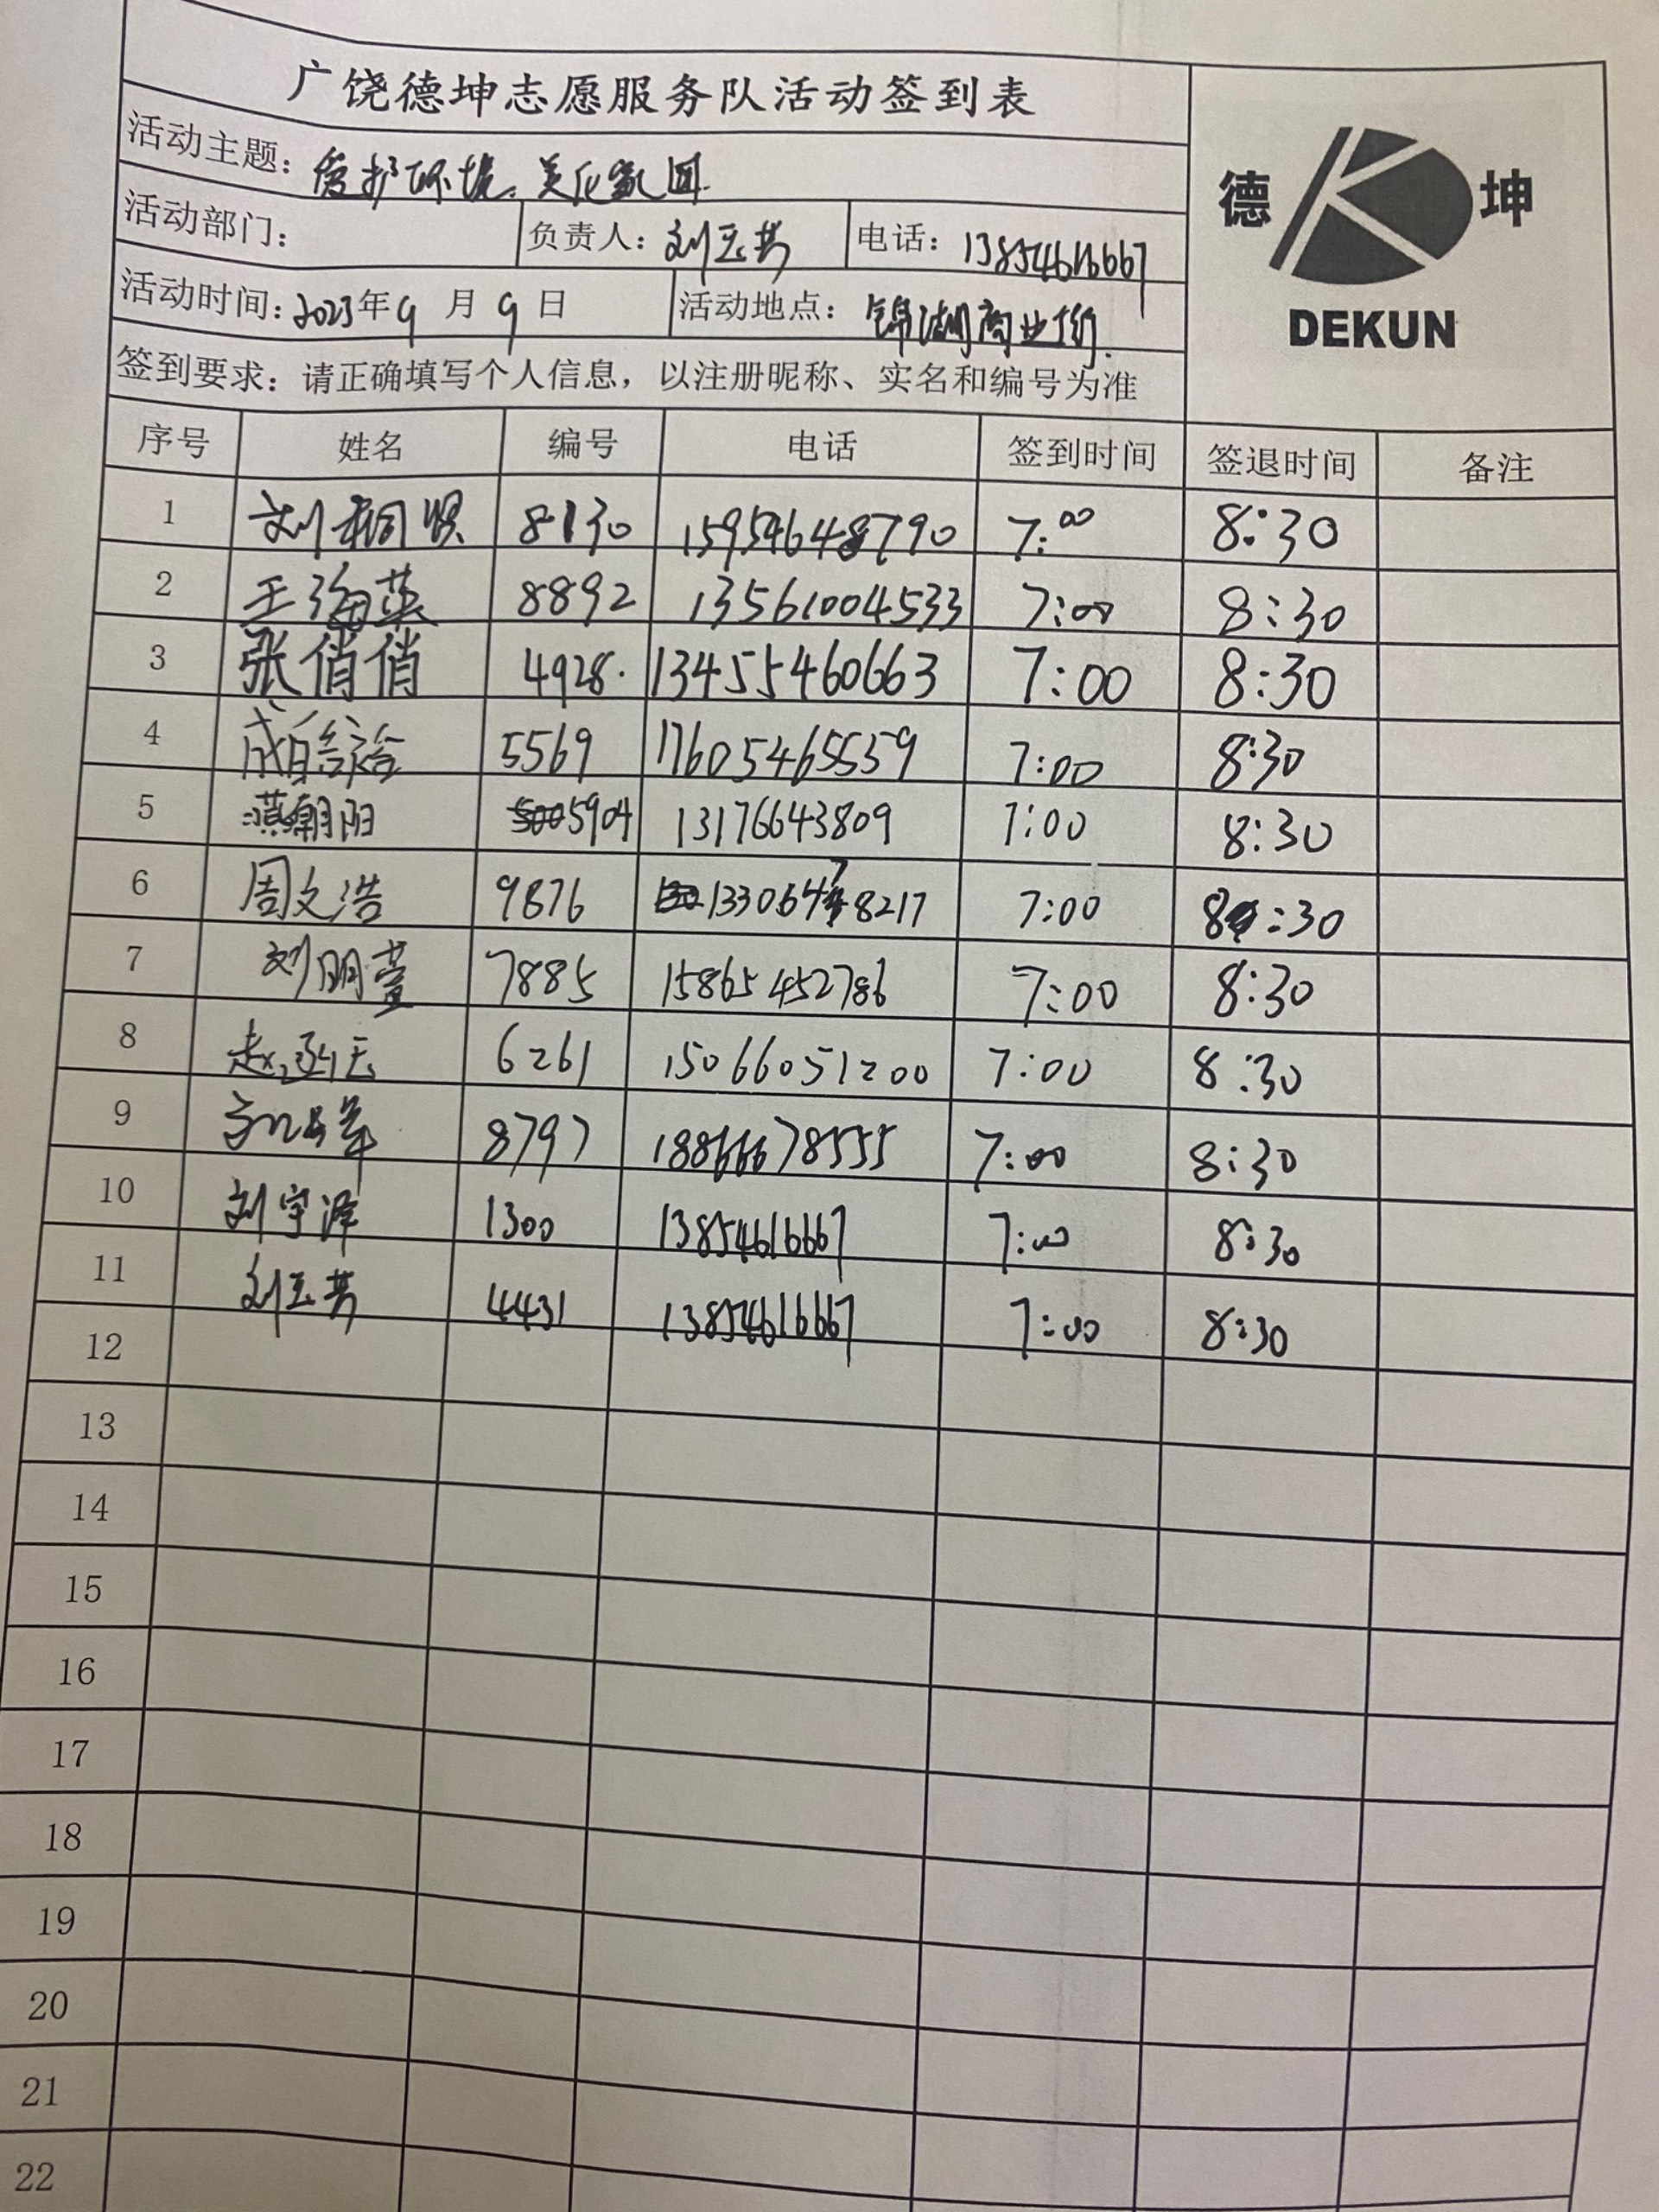 广饶德坤志愿服务队活动签到表
德 坤
DEKUN
活动主题：爱护环境.美化家园.
活动部门： 负责人：刘玉芳 电话：13854616667
活动时间：2023年9月9日 活动地点：锦湖商业街.
签到要求：请正确填写个人信息，以注册昵称、实名和编号为准
序号 姓名 编号 电话 签到时间 签退时间 备注
1 刘桐 8130 15954648790 7:00 8:30
2 王海英 8892 13561004533 7:00 8:30
3 张俏俏 4928. 13455460663 7:00 8:30
4 5569 17605465559 7:00 8:30
5 朝阳 5904 13176643809 7:00 8:30
6 周文浩 9876 13306478217 7:00 8:30
7 刘朋萱 7885 15865452786 7:00 8:30
8 赵 6261 15066051200 7:00 8:30
9 8797 18866678555 7:00 8:30
10 刘宇泽 1300 13854616667 7:00 8:30
11 刘玉芳 4431 13854616667 7:00 8:30
12
13
14
15
16
17
18
19
20
21
22